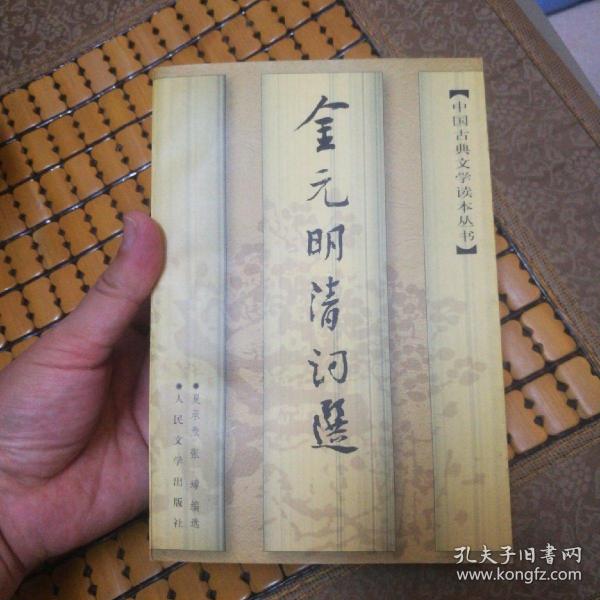 【中国古典文学读本丛书】
金元明清词選
●夏承焘 张璋 编选
●人民文学出版社
孔夫子旧书网
www.kongfz.com